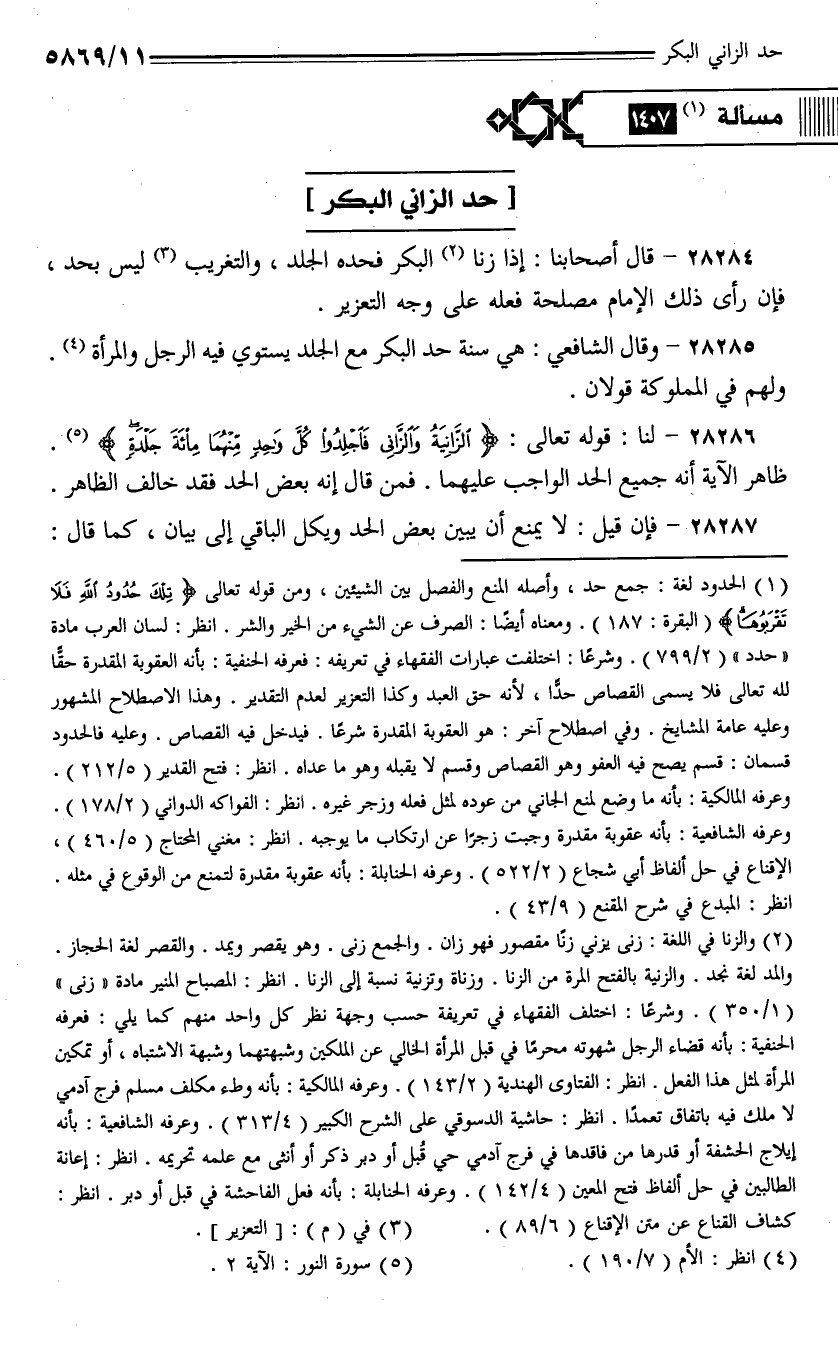 حد الزاني البكر ٥٨٦٩/١١
مسألة (١) ١٤٠٧
[ حد الزاني البكر ]
٢٨٢٨٤ - قال أصحابنا : إذا زنا (٢) البكر فحده الجلد ، والتغريب (٣) ليس بحد ،
فإن رأى ذلك الإمام مصلحة فعله على وجه التعزير .
٢٨٢٨٥ - وقال الشافعي : هي سنة حد البكر مع الجلد يستوي فيه الرجل والمرأة (٤) .
ولهم في المملوكة قولان .
٢٨٢٨٦ - لنا : قوله تعالى : ﴿ ٱلزَّانِيَةُ وَٱلزَّانِى فَٱجْلِدُوا۟ كُلَّ وَٰحِدٍ مِّنْهُمَا مِا۟ئَةَ جَلْدَةٍ ﴾ (٥) .
ظاهر الآية أنه جميع الحد الواجب عليهما . فمن قال إنه بعض الحد فقد خالف الظاهر .
٢٨٢٨٧ - فإن قيل : لا يمنع أن يبين بعض الحد ويكل الباقي إلى بيان ، كما قال :
(١) الحدود لغة : جمع حد ، وأصله المنع والفصل بين الشيئين ، ومن قوله تعالى ﴿ تِلْكَ حُدُودُ ٱللَّهِ فَلَا
تَقْرَبُوهَا ﴾ ( البقرة : ١٨٧ ) . ومعناه أيضًا : الصرف عن الشيء من الخير والشر . انظر : لسان العرب مادة
« حدد » ( ٧٩٩/٢ ) . وشرعًا : اختلفت عبارات الفقهاء في تعريفه : فعرفه الحنفية : بأنه العقوبة المقدرة حقًّا
لله تعالى فلا يسمى القصاص حدًّا ، لأنه حق العبد وكذا التعزير لعدم التقدير . وهذا الاصطلاح المشهور
وعليه عامة المشايخ . وفي اصطلاح آخر : هو العقوبة المقدرة شرعًا . فيدخل فيه القصاص . وعليه فالحدود
قسمان : قسم يصح فيه العفو وهو القصاص وقسم لا يقبله وهو ما عداه . انظر : فتح القدير ( ٢١٢/٥ ) .
وعرفه المالكية : بأنه ما وضع لمنع الجاني من عوده لمثل فعله وزجر غيره . انظر : الفواكه الدواني ( ١٧٨/٢ ) .
وعرفه الشافعية : بأنه عقوبة مقدرة وجبت زجرًا عن ارتكاب ما يوجبه . انظر : مغني المحتاج ( ٤٦٠/٥ ) ،
الإقناع في حل ألفاظ أبي شجاع ( ٥٢٢/٢ ) . وعرفه الحنابلة : بأنه عقوبة مقدرة لتمنع من الوقوع في مثله .
انظر : المبدع في شرح المقنع ( ٤٣/٩ ) .
(٢) والزنا في اللغة : زنى يزني زنًا مقصور فهو زان . والجمع زنى . وهو يقصر ويمد . والقصر لغة الحجاز .
والمد لغة نجد . والزنية بالفتح المرة من الزنا . وزناة وتزنية نسبة إلى الزنا . انظر : المصباح المنير مادة « زنى »
( ٣٥٠/١ ) . وشرعًا : اختلف الفقهاء في تعريفة حسب وجهة نظر كل واحد منهم كما يلي : فعرفه
الحنفية : بأنه قضاء الرجل شهوته محرمًا في قبل المرأة الخالي عن الملكين وشبهتهما وشبهة الاشتباه ، أو تمكين
المرأة لمثل هذا الفعل . انظر : الفتاوى الهندية ( ١٤٣/٢ ) . وعرفه المالكية : بأنه وطء مكلف مسلم فرج آدمي
لا ملك فيه باتفاق تعمدًا . انظر : حاشية الدسوقي على الشرح الكبير ( ٣١٣/٤ ) . وعرفه الشافعية : بأنه
إيلاج الحشفة أو قدرها من فاقدها في فرج آدمي حي قُبل أو دبر ذكر أو أنثى مع علمه تحريمه . انظر : إعانة
الطالبين في حل ألفاظ فتح المعين ( ١٤٢/٤ ) . وعرفه الحنابلة : بأنه فعل الفاحشة في قبل أو دبر . انظر :
كشاف القناع عن متن الإقناع ( ٨٩/٦ ) . (٣) في ( م ) : [ التعزير ] .
(٤) انظر : الأم ( ١٩٠/٧ ) . (٥) سورة النور : الآية ٢ .